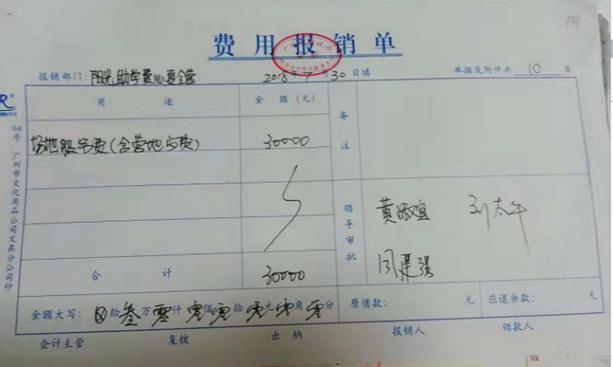 费用报销单
报销部门：阳光助学爱心夏令营 2018年7月30日填 单据及附件共 10 页
用途 金额（元） 备注
场地服务费(含营地占费) 30000
领导审批
刘太平
合计 30000
金额大写： 拾叁万零仟零佰零拾零元零角零分 原借款： 元 应退余款： 元
会计主管 复核 出纳 报销人 领款人
04号 广州市文化用品公司文具分公司印